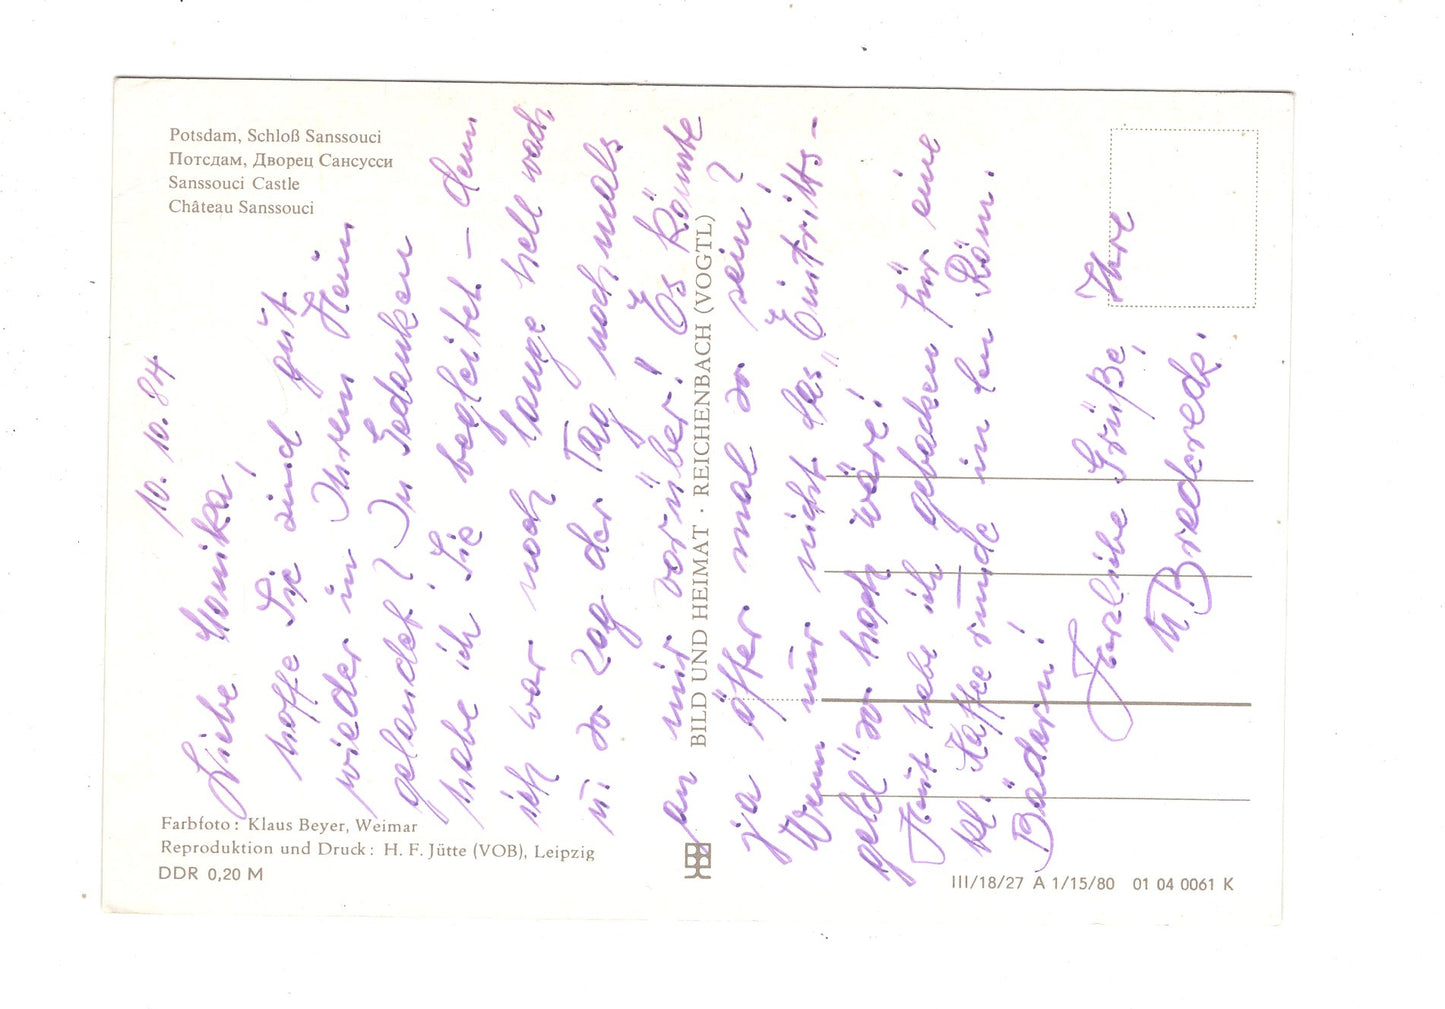 Potsdam, Schloß Sanssouci
Потсдам, Дворец Сансусси
Sanssouci Castle
Château Sanssouci
10.10.84
Liebe Monika!
hoffe Sie sind gut
wieder in Ihrem Heim
gelandet? In Gedanken
habe ich Sie begleitet – denn
ich war noch lange hell wach
u. so zog der Tag nochmals
an mir vorüber! Es könnte
ja öfter mal so sein?
Wenn nur nicht das "Eintritts-
geld" so hoch wäre!
Heut habe ich gebacken für eine
kl. Kaffeerunde in den Röm.
Bädern!
Herzliche Grüße, Ihre
M Bredereck.
BILD UND HEIMAT · REICHENBACH (VOGTL)
Farbfoto: Klaus Beyer, Weimar
Reproduktion und Druck: H. F. Jütte (VOB), Leipzig
DDR 0,20 M
III/18/27 A 1/15/80 01 04 0061 K